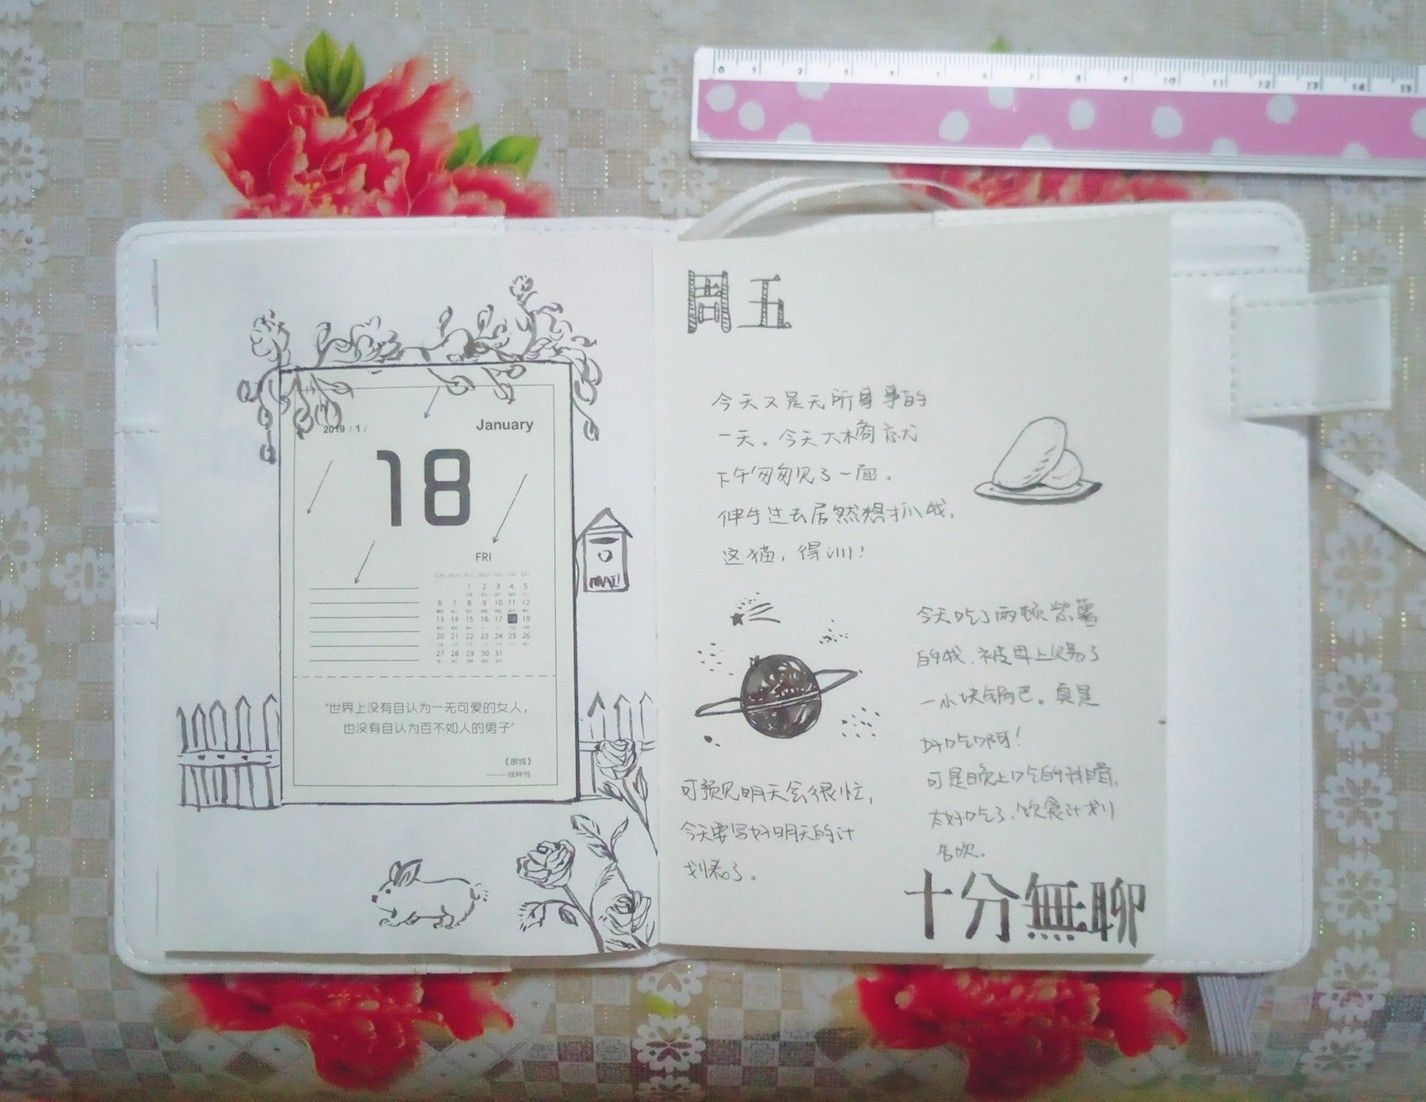 0 1 2 3 4 5 6 7 8 9 10 11 12 13 14 15
2019 / 1 /
January
18
FRI
SUN MON TUE WED THU FRI SAT
1 2 3 4 5
6 7 8 9 10 11 12
13 14 15 16 17 18 19
20 21 22 23 24 25 26
27 28 29 30 31
“世界上没有自认为一无可爱的女人，
也没有自认为百不如人的男子”
《围城》
——钱钟书
周五
今天又是无所事事的
一天。今天大橘
下午匆匆见了一面。
伸手过去居然想抓我，
这猫，得训！
今天吃了两顿紫薯
的我，被母上赐了
一小块锅巴。真是
好吃啊！
可是晚上吃的排骨，
太好吃了，饮食计划
告吹。
可预见明天会很忙，
今天要写好明天的计
划表了。
十分無聊